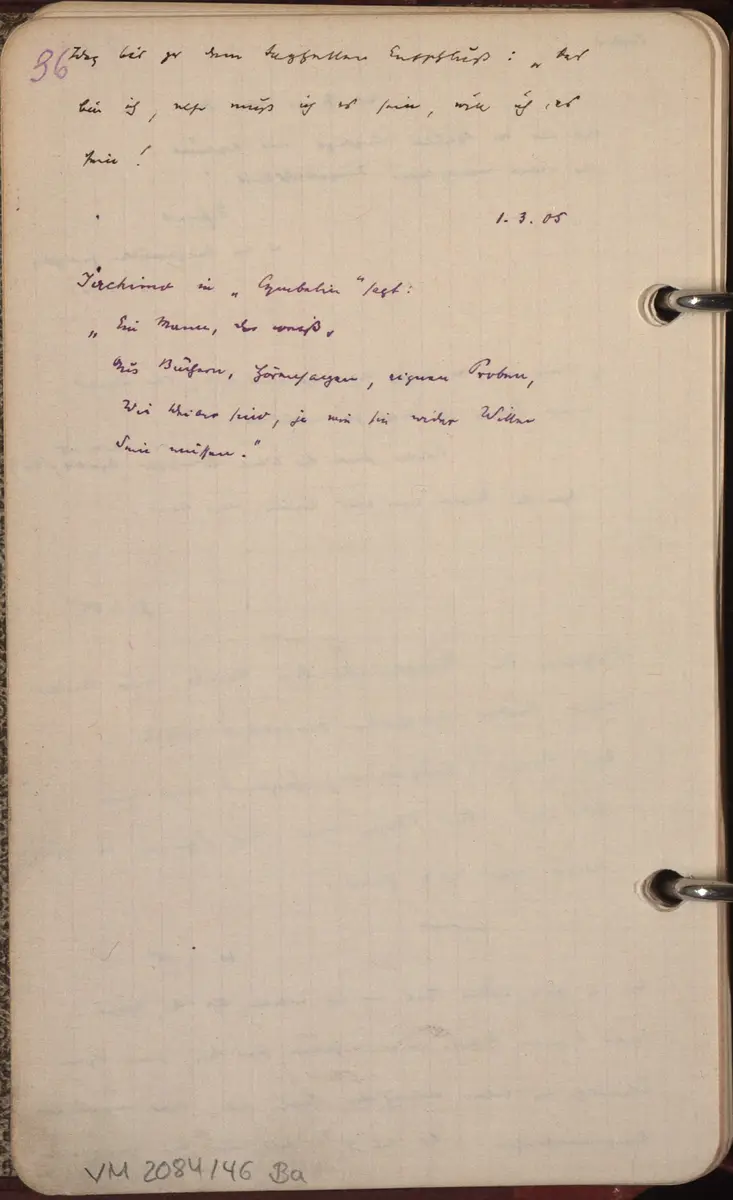 96
Weg bis zu dem lusthellen Entschluß: „das
bin ich, also muß ich es sein, will ich es
sein!
1.3.05
Jachimo in „Cymbelin" sagt:
„Ein Mann, der weiß,
Aus Büchern, Hörensagen, eignen Proben,
Wie Weiber sind, ja wie sie wider Willen
Sein müssen."
VM 2084/46 Ba